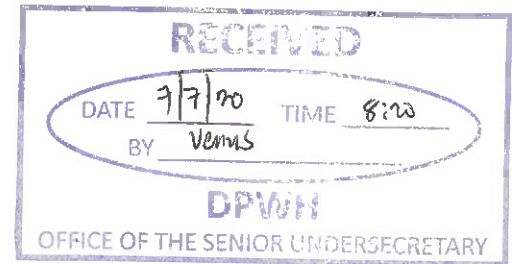 RECEIVED
DATE 7/7/20 TIME 8:20
BY Venus
DPWH
OFFICE OF THE SENIOR UNDERSECRETARY